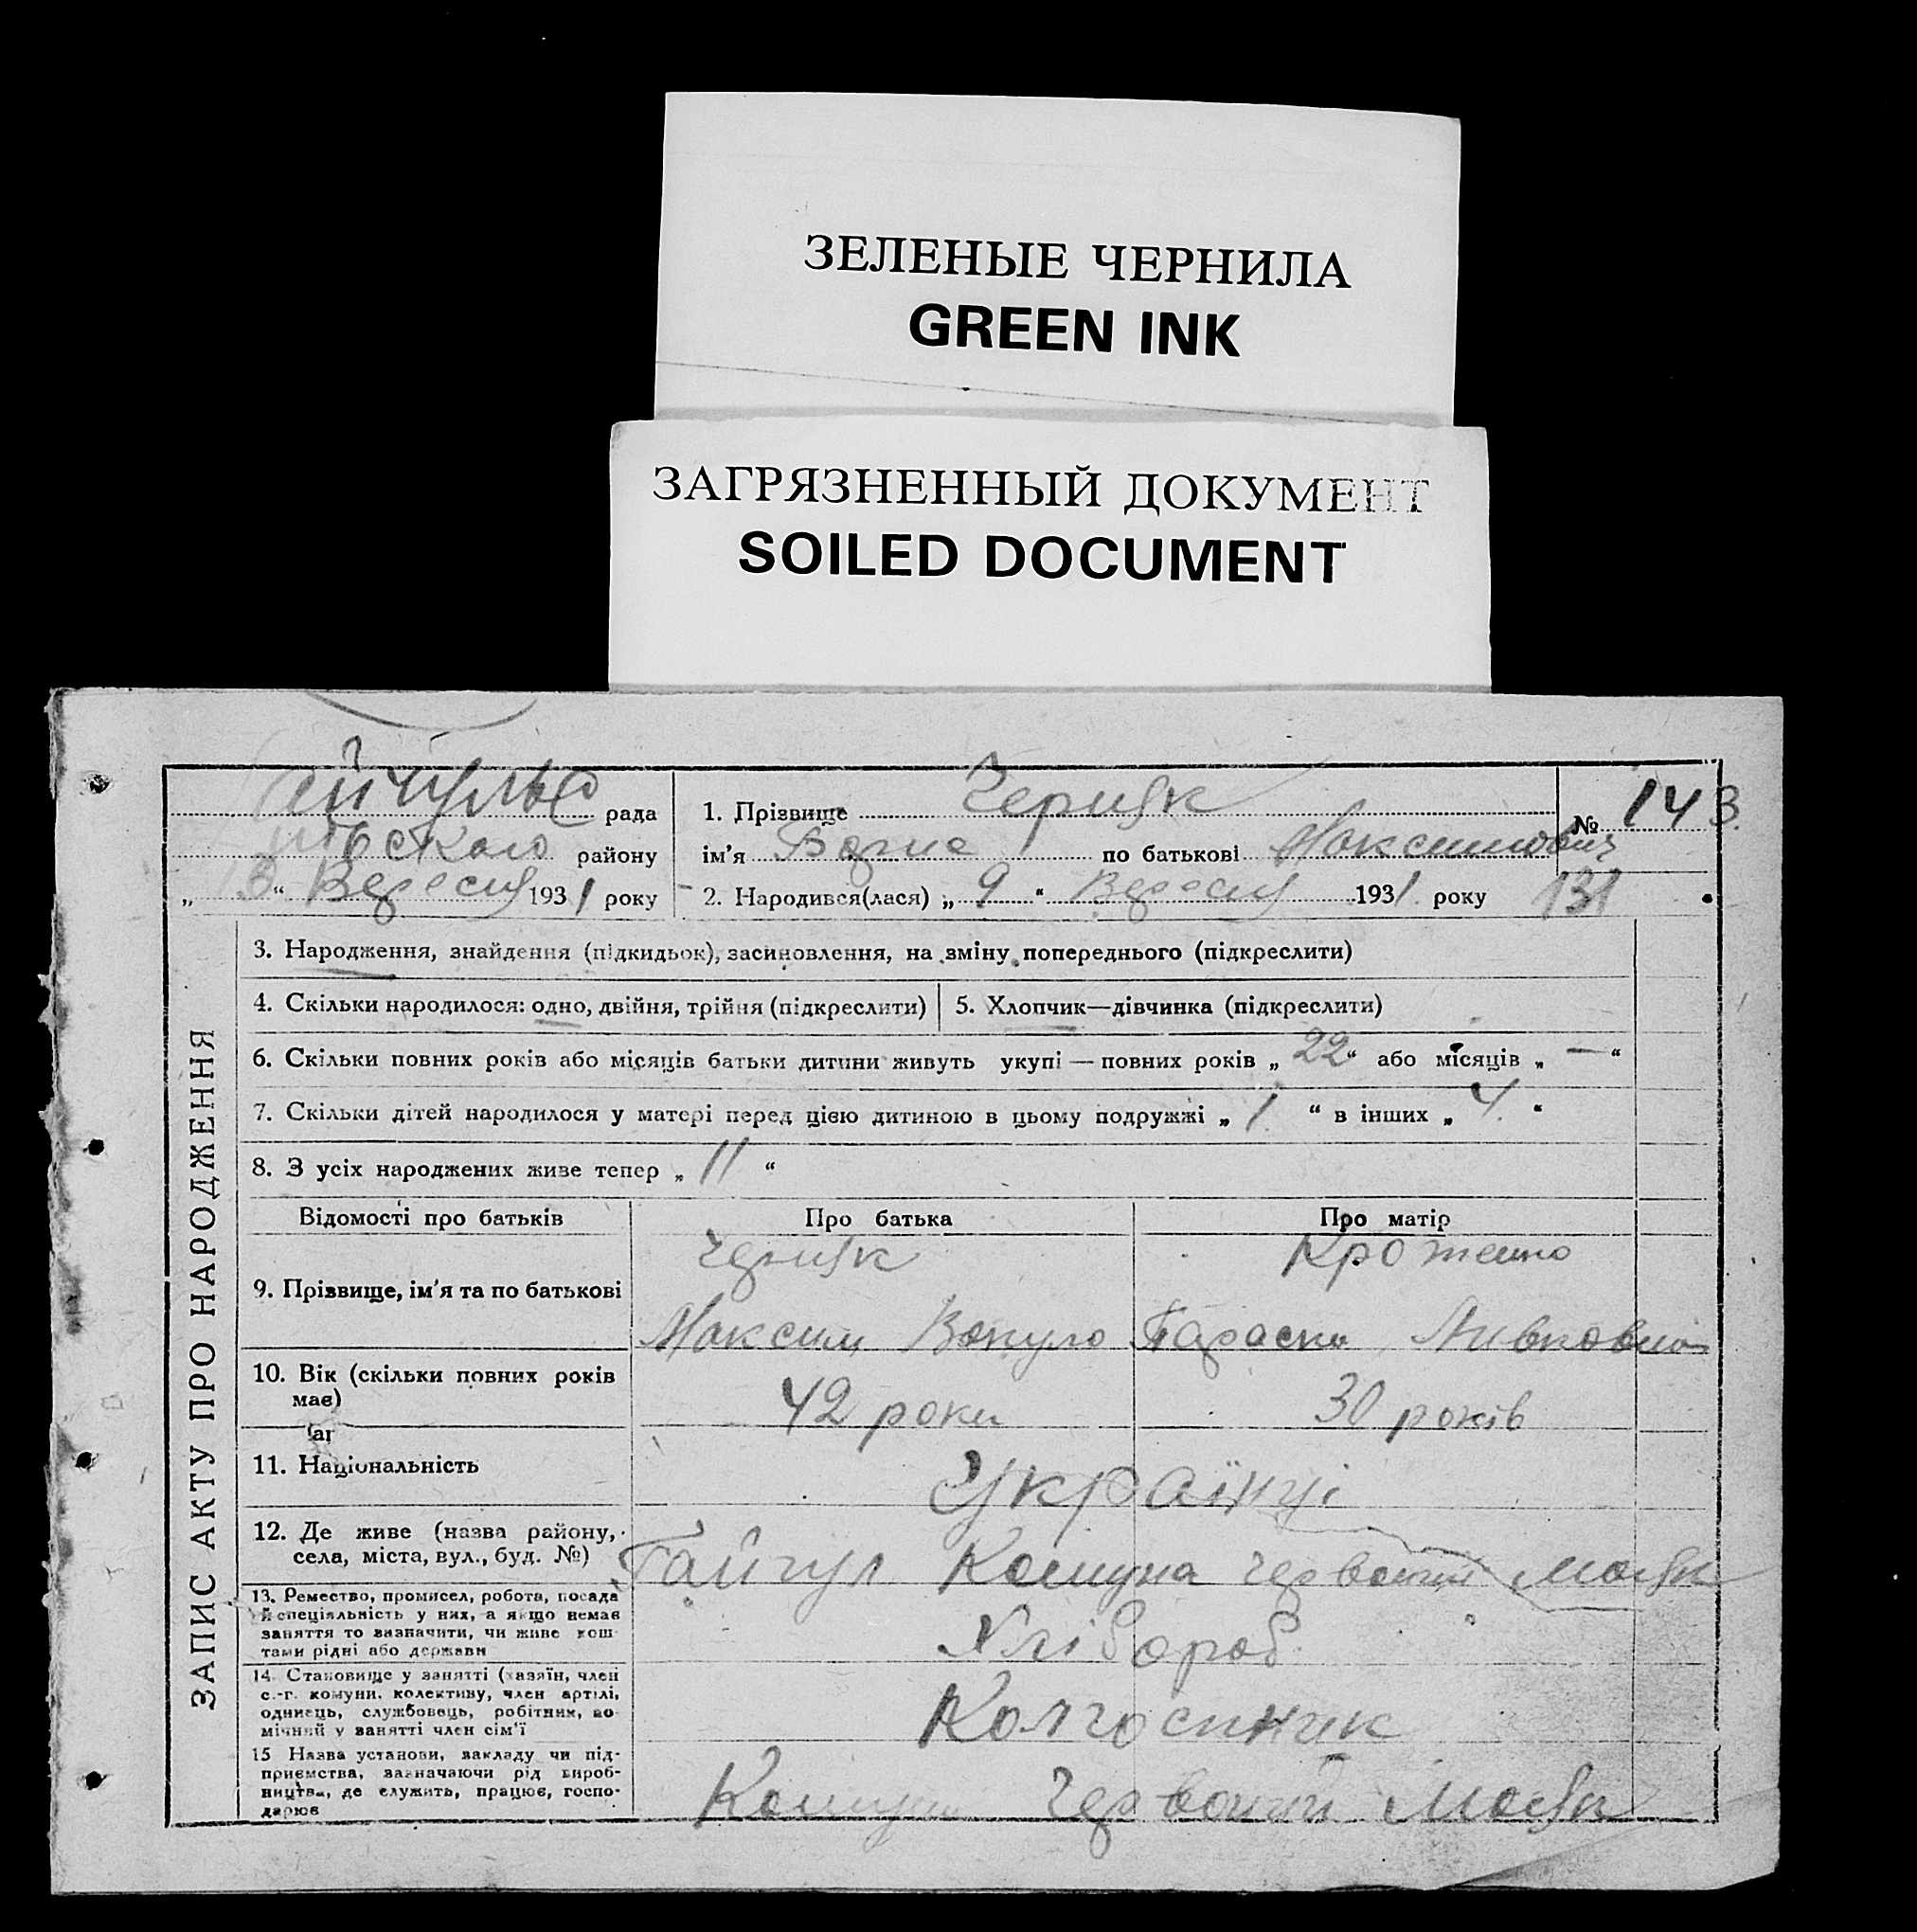 ЗЕЛЕНЫЕ ЧЕРНИЛА
GREEN INK
ЗАГРЯЗНЕННЫЙ ДОКУМЕНТ
SOILED DOCUMENT
рада
району
„ 13 “ Вересня 1931 року
1. Прізвище Черняк
№ 143
ім’я по батькові Максимович
2. Народився(лася) „ 9 “ Вересня 1931 року
131
ЗАПИС АКТУ ПРО НАРОДЖЕННЯ
3. Народження, знайдення (підкидьок), засиновлення, на зміну попереднього (підкреслити)
4. Скільки народилося: одно, двійня, трійня (підкреслити)
5. Хлопчик—дівчинка (підкреслити)
6. Скільки повних років або місяців батьки дитини живуть укупі — повних років „ 22 “ або місяців „ — “
7. Скільки дітей народилося у матері перед цією дитиною в цьому подружжі „ 1 “ в інших „ 4 “
8. З усіх народжених живе тепер „ 11 “
Відомості про батьків
Про батька
Про матір
9. Прізвище, ім’я та по батькові
Черняк
Максим
Параска
10. Вік (скільки повних років має)
42 роки
30 років
11. Національність
Українці
12. Де живе (назва району, села, міста, вул., буд. №)
Гайчул Комуна Червоний Маяк
13. Ремество, промисел, робота, посада й спеціяльність у них, а якщо немає заняття то зазначити, чи живе коштами рідні або держави
Хлібороб
14. Становище у занятті (хазяїн, член с.-г. комуни, колективу, член артілі, одинець, службовець, робітник, помічний у занятті член сім’ї
Колгоспник
15 Назва установи, закладу чи підприємства, зазначаючи рід виробництва, де служить, працює, господарює
Комуна Червоний Маяк